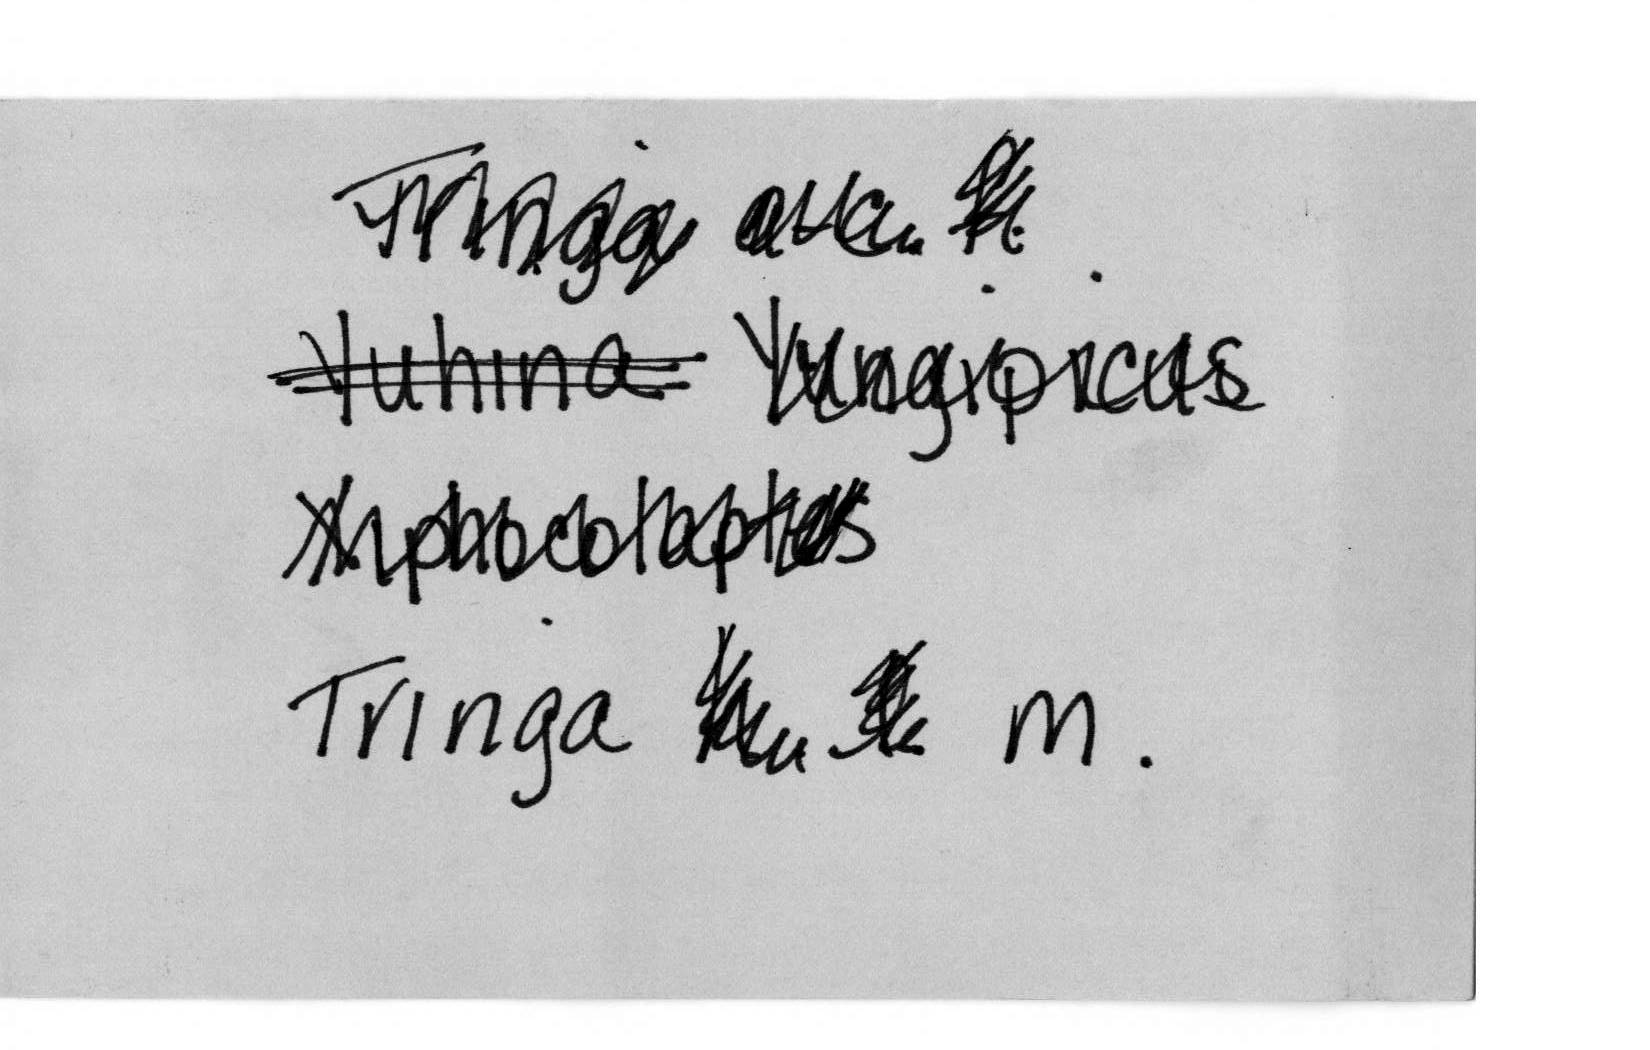 Tringa
Yuhina Yungipicus
Xiphocolaptes
Tringa m.